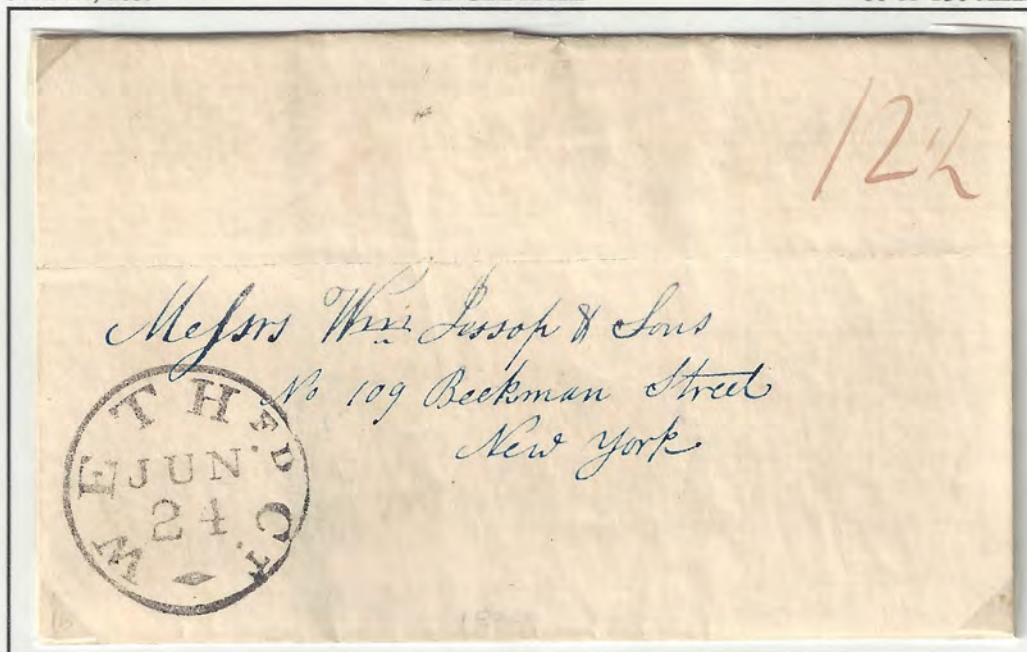 12½
Messrs Wm Jessop & Sons
No 109 Beekman Street
New York
WETHFD CT.
JUN
24